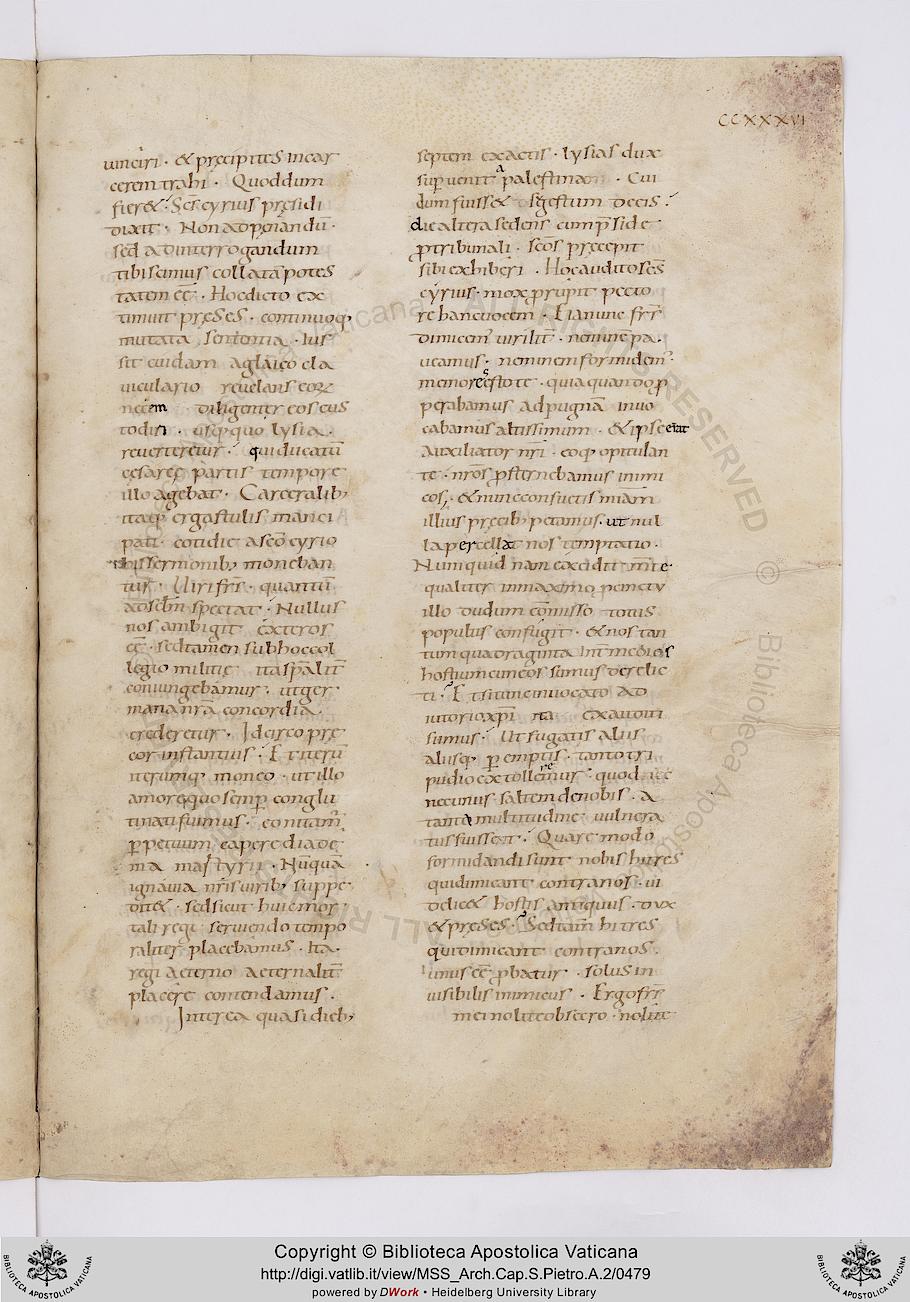 CCXXXVI
uinciri · & precipites in car
cerem trahi · Quod dum
fier& · Scs cyrius presidi
dixit · Non ad peiandū ·
sed ad interrogandum
tibi scimus collatā potes
tatem eē · Hoc dicto ex
timuit preses · continuoq;
mutata sententia · ius
sit cuidam aglaico cla
uiculario reuelans
necem diligenter eos cus
todiri · usq; quo lysia ·
reuerteretur · qui ducatū
cesaree partis tempore
illo agebat · Carceralib;
itaq; ergastulis manci
pati · cotidie a sco cyrio
his sermonib; moneban
tur · Uiri frs · quantū
ad spectat · Nullus
nos ambigit exteros
eē · sed tamen sub hoc col
legio militie ita spalit
coniungebamur · ut ger
mana nra concordia
crederetur · Idcirco pre
cor instantius · Et iterū
iterumq; moneo · ut illo
amore quo semp conglu
tinati fuimus ·
ppetuum capere diade
ma martyrii · Nūquā
ignauia nris uirib; suppe
dit& · sed sicut huic mor
tali regi seruiendo tempo
raliter placebamus · Ita ·
regi aeterno aeternalit
placere contendamus ·
Interea quasi dieb;
septem exactis · lysias dux
supuenit a palestina · Cui
dum fuiss& sgestum de eis ·
die altera sedens cum pside
ptribunali · scos precepit
sibi exhiberi · Hoc audito scs
cyrius · mox prupit pecto
re hanc uocem · Eia nunc frs
dimicem uirilit · neminē pa ·
ueamus · neminem formidem ·
memores estote · quia quando p
perabamus ad pugnā inuo
cabamus altissimum · & ipse erat
auxiliator nri · eoq; opitulan
te · nros psternebamus inimi
cos, · & nunc consuetis miām
illius precib; petamus · ut nul
la percellat nos temptatio ·
Numquid nam excidit mte ·
qualiter in maximo penetu
illo dudum cōmisso totus
populus confugit · & nos tan
tum quadraginta int medios
hostium cuneos sumus derelic
ti · Et si tunc inuocato ad
iutorio xpi ita exauditi
sumus · Ut fugatis aliis
aliisq; pemptis · tanto tri
pudio extolleremur · quod nec
nec unus saltem de nobis · a
tanta multitudine uulnera
tus fuisset · Quare modo
formidandi sunt nobis hi tres
qui dimicant contra nos · ui
delic& hostis antiquus · dux
& preses · Sed tam hi tres
qui dimicant contra nos ·
unus eē pbatur · solus in
uisibilis inimicus · Ergo frs
mei nolite obsecro · nolite
Copyright © Biblioteca Apostolica Vaticana
http://digi.vatlib.it/view/MSS_Arch.Cap.S.Pietro.A.2/0479
powered by DWork • Heidelberg University Library